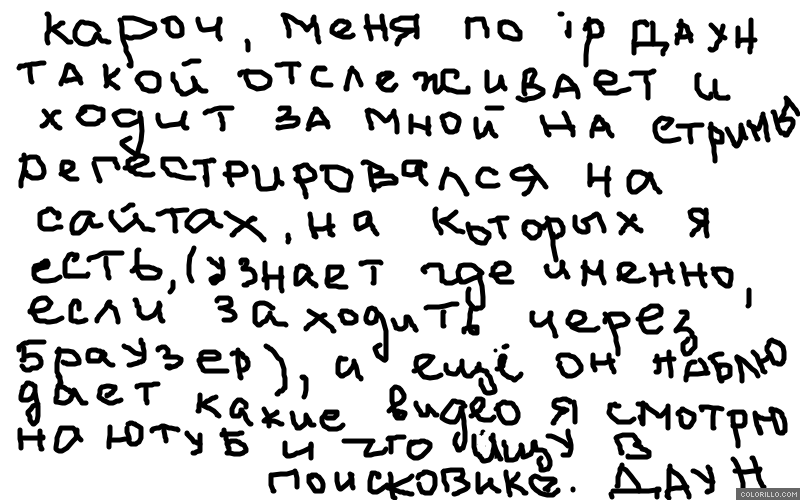 кароч, меня по ip даун
такой отслеживает и
ходит за мной на стримы
регестрировался на
сайтах, на которых я
есть, (узнает где именно,
если заходить через
браузер), а ещё он наблю
дает какие видео я смотрю
на ютуб и что ищу в
поисковике. ДДАУН
COLORILLO.COM